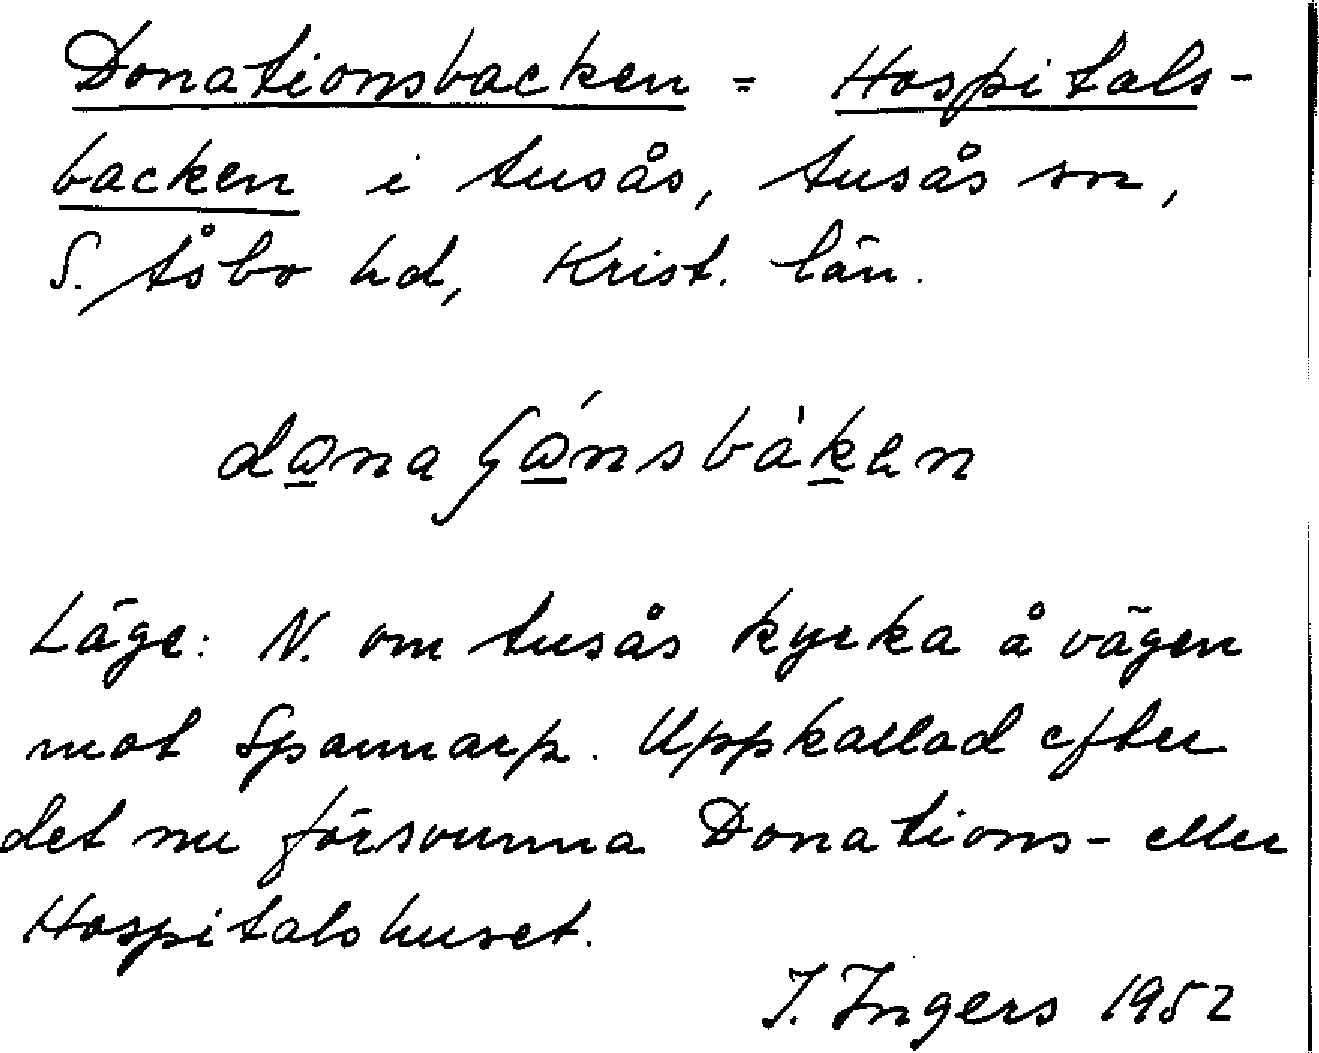 Donationsbacken = Hospitals-
backen i Ausås, Ausås sn,
S. Åsbo hd, Krist. län.
dω̲naʃώ̲nsbàk̲en
Läge: N. om Ausås kyrka å vägen
mot Spannarp. Uppkallad efter
det nu försvunna Donations- eller
Hospitalshuset.
I. Ingers 1952